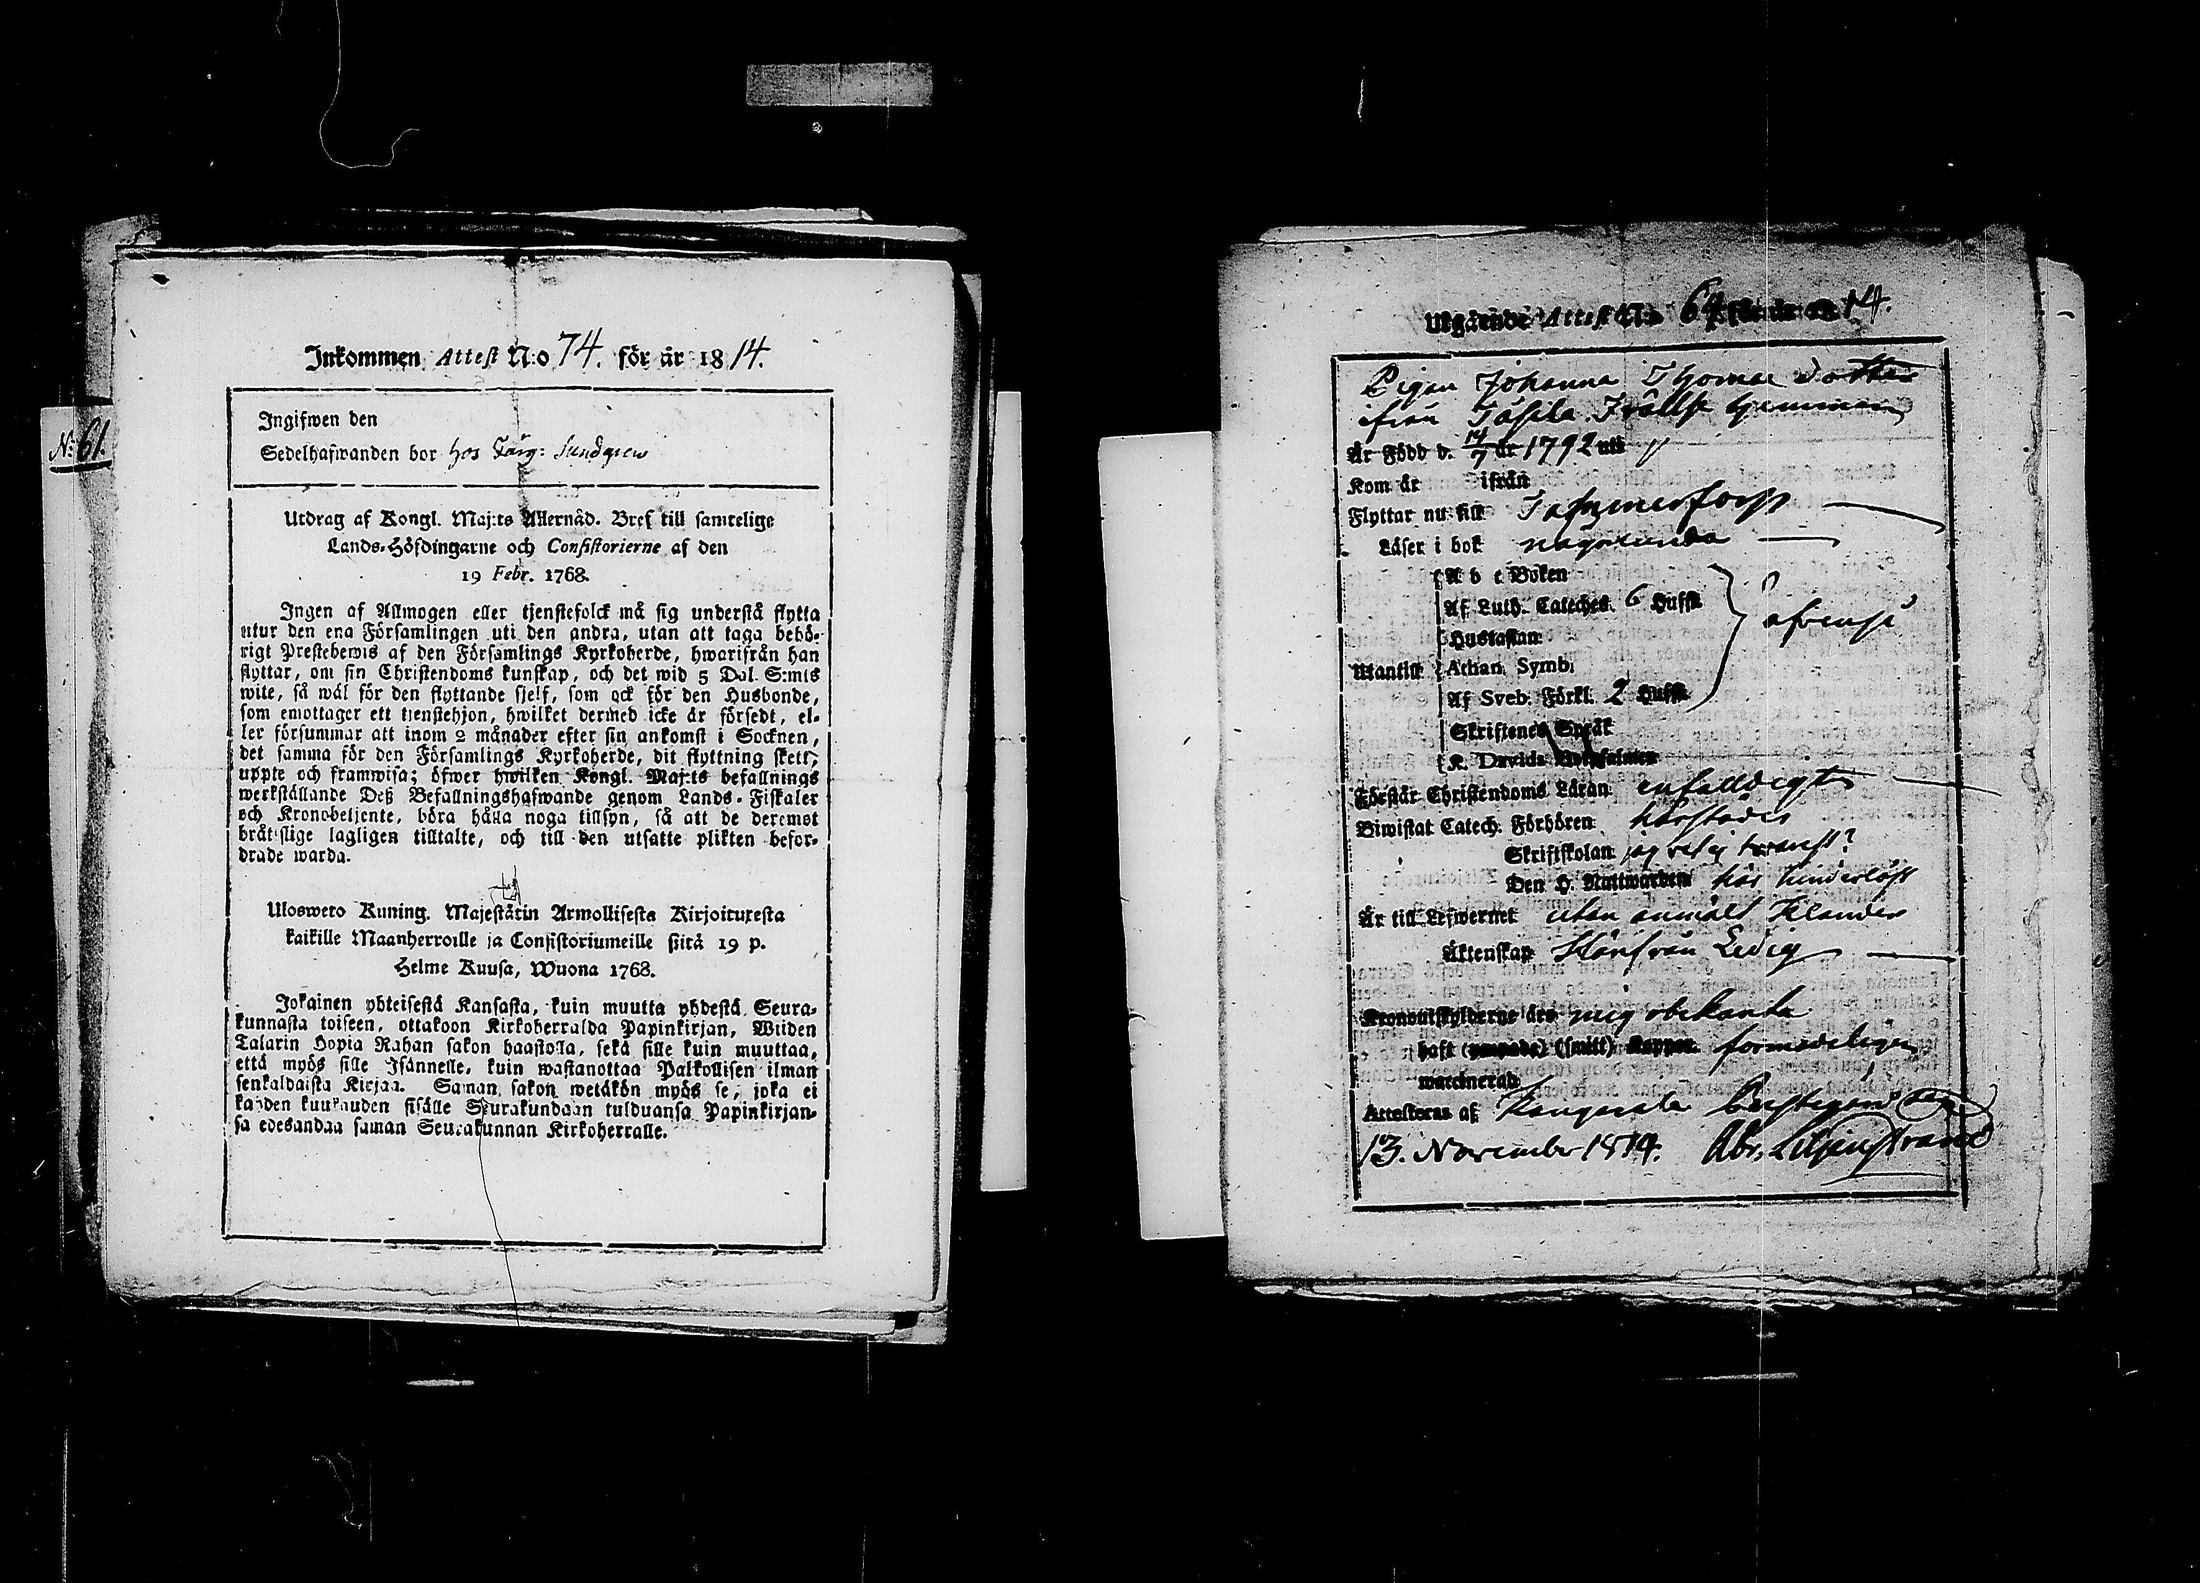 N: 61.
Inkommen Attest N:o 74. för år 1814.
Ingifwen den
Sedelhafwanden bor hos Färg: Sundgren
Utdrag af Kongl. Maj:ts Allernåd. Bref till samtelige
Lands-Höfdingarne och Consistorierne af den
19 Febr. 1768.
Ingen af Allmogen eller tjenstefolck må sig understå flytta
utur den ena Församlingen uti den andra, utan att taga behö-
rigt Prestebewis af den Församlings Kyrkoherde, hwarifrån han
flyttar, om sin Christendoms kunskap, och det wid 5 Dal. S:mts
wite, så wäl för den flyttande sjelf, som ock för den Husbonde,
som emottager ett tjenstehjon, hwilket dermed icke är försedt, el-
ler försummar att inom 2 månader efter sin ankomst i Socknen,
det samma för den Församlings Kyrkoherde, dit flyttning skett,
uppte och framwisa; öfwer hwilken Kongl. Maj:ts befallnings
werkställande Deß Befallningshafwande genom Lands-Fiskaler
och Kronobetjente, böra hålla noga tillsyn, så att de deremot
bråtslige lagligen tilltalte, och till den utsatte plikten befor-
drade warda.
Uloswето Kuning. Majestätin Armollisesta Kirjoituxesta
kaikille Maanherroille ja Consistoriumeille sitä 19 p.
Helme Kuusa, Wuona 1768.
Jokainen yhteisestä Kansasta, kuin muutta yhdestä Seura-
kunnasta toiseen, ottakoon Kirkoherralda Papinkirjan, Wiiden
Talarin Hopia Rahan sakon haastolla, sekä sille kuin muuttaa,
että myös sille Isännelle, kuin wastanottaa Palkollisen ilman
senkaldaista Kirjaa. Saman sakon wetäkön myös se, joka ei
kahden kuukauden sisälle Seurakundaan tulduansa Papinkirjan-
sa edesandaa saman Seurakunnan Kirkoherralle.
Utgående Attest N:o 64 för år 1814.
Pigan Johanna Thomae dotter
ifrån Hemman
Är Född d. 14/7 år 1792 uti
Kom år ifrån
Flyttar nu till Tammerfors
Läser i bok någorlunda
A b c Boken
Af Luth. Cateches. 6 Hufst.
Hustaflan
Utantill Athan. Symb.
Af Sveb. Förkl. 2 Hufst.
Skriftenes Språk
K. Davids
Förstår Christendoms Läran enfalldigt
Biwistat Catech. Förhören härstädes
Skriftskolan
Den H. Nattwarden har hinderlöst
Är till Lefwernet utan anmält klander
Äktenskap Härifrån Ledig
Kronoutskylderne äro mig obekanta
haft (smitt) Koppor förmodeligen
waccinerad
Attesteras af Kangasala
13. November 1814.